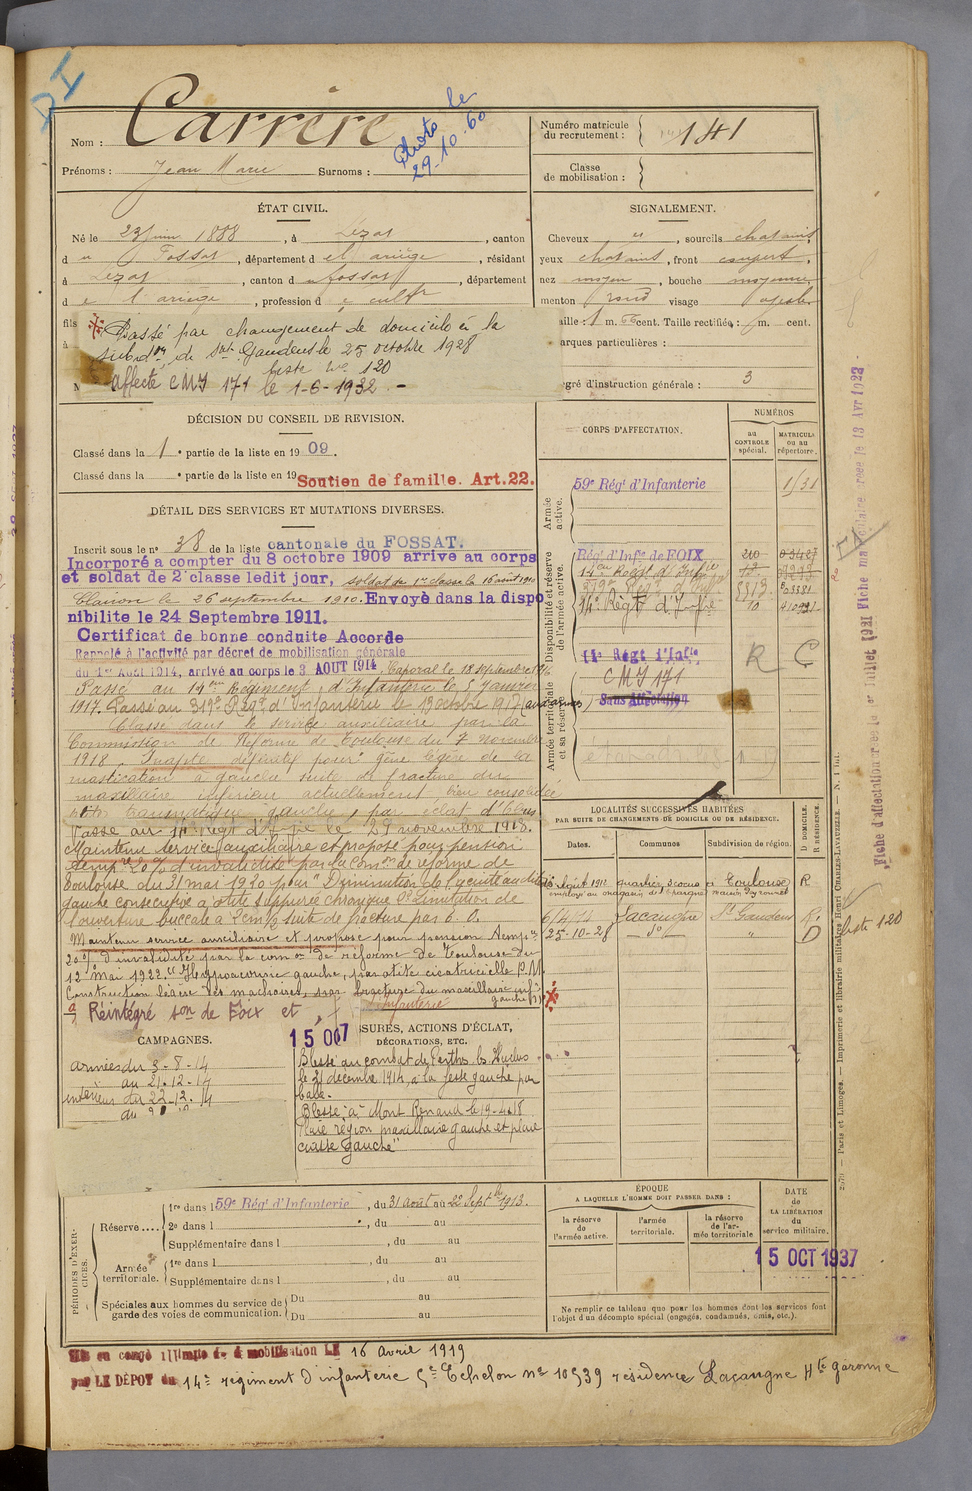 Nom : Carrère
Photo le 29-10-60
Prénoms : Jean Marie Surnoms :
Numéro matricule du recrutement : 141
Classe de mobilisation :
ÉTAT CIVIL.
Né le 23 juin 1888, à Lézat, canton
du Fossat, département de l'ariège, résidant
à Lézat, canton du fossat, département
de l'ariège, profession de cultr
fils
à
Passé par changement de domicile à la
subdon de St Gaudens le 25 octobre 1928
liste No 120
affecté CMI 171 le 1-6-1932 -
SIGNALEMENT.
Cheveux et, sourcils chatains
yeux chatains, front couvert,
nez moyen, bouche moyenne
menton rond visage ovale
aille : 1 m. 66 cent. Taille rectifiée : m. cent.
arques particulières :
egré d'instruction générale : 3
DÉCISION DU CONSEIL DE REVISION.
Classé dans la 1e partie de la liste en 1909.
Classé dans la e partie de la liste en 19
Soutien de famille. Art.22.
DÉTAIL DES SERVICES ET MUTATIONS DIVERSES.
Inscrit sous le no 38 de la liste cantonale du FOSSAT.
Incorporé a compter du 8 octobre 1909 arrivé au corps
et soldat de 2e classe ledit jour, soldat de 1re classe le 16 août 1910
Clairon le 26 septembre 1910. Envoyé dans la dispo
nibilité le 24 Septembre 1911.
Certificat de bonne conduite Accorde
Rappelé à l'activité par décret de mobilisation générale
du 1er Août 1914, arrivé au corps le 3 AOUT 1914. Caporal le 18 septembre
Passé au 14eme Régiment d'Infanterie le 5 Janvier
1917. Passé au 319e Régt d'Infanterie le 13 octobre 1917 (aux armées)
Classé dans le service auxiliaire par la
Commission de Réforme de Toulouse du 7 novembre
1918. Inapte définitif pour gêne légère de la
mastication à gauche suite de fracture du
maxillaire inférieur actuellement bien consolidée
otite traumatique gauche, par éclat d'obus
Passé au 14e Régt d'Infie le 29 novembre 1918.
Maintenu service auxiliaire et proposé pour pension
tempre 20% d'invalidité par la Comon de réforme de
Toulouse du 31 mai 1920 pour "Diminution de l'acuité auditive
gauche consécutive à otite suppurée chronique 2° Limitation de
l'ouverture buccale à 2cm½ suite de fracture par é. O.
Maintenu service auxiliaire et proposé pour pension tempre
20% d'invalidité par la comon de réforme de Toulouse du
12 mai 1922. "Hypoacousie gauche, par otite cicatricielle P.M.
Constriction légère des machoires, par fracture du maxillaire infr
gauche
Réintégré son de Foix et
Infanterie
15 OCT
CORPS D'AFFECTATION.
NUMÉROS
au CONTROLE spécial.
MATRICULE ou au répertoire.
Armée active.
59e Régt d'Infanterie 1/31
Disponibilité et réserve de l'armée active.
Régt d'Infie de FOIX 210
14eme Régt d'Infie
14e Régt d'Infie 10
Armée territoriale et sa réserve.
14e Régt d'Infie
R C
CMI 171
Sans Affectation
LOCALITÉS SUCCESSIVES HABITÉES
PAR SUITE DE CHANGEMENTS DE DOMICILE OU DE RÉSIDENCE.
Dates. Communes Subdivision de région. D DOMICILE. R RÉSIDENCE.
Toulouse R
6/4/14 Lacaugne St Gaudens R
25-10-28 — do — " D
liste 120
CAMPAGNES.
armées du 3-8-14
au 21-12-14
intérieur du 22-12-14
au
SSURES, ACTIONS D'ÉCLAT,
DÉCORATIONS, ETC.
Blessé au combat de Perthes les Hurlus
le 21 décembre 1914, à la fesse gauche par
balle.
Blessé à Mont Renaud le 19-4-18
"Plaie région maxillaire gauche et plaie
cuisse gauche"
PÉRIODES D'EXERCICES.
Réserve....
1re dans l 59e Régt d'Infanterie, du 31 août au 22 Septbre 1913.
2e dans l , du au
Supplémentaire dans l , du au
Armée territoriale.
1re dans l , du au
Supplémentaire dans l , du au
Spéciales aux hommes du service de garde des voies de communication.
Du au
Du au
ÉPOQUE
A LAQUELLE L'HOMME DOIT PASSER DANS :
la réserve de l'armée active.
l'armée territoriale.
la réserve de l'armée territoriale
DATE de LA LIBÉRATION du service militaire.
15 OCT 1937
Ne remplir ce tableau que pour les hommes dont les services font
l'objet d'un décompte spécial (engagés, condamnés, omis, etc.).
Mis en congé illimité de démobilisation LE 16 avril 1919
par LE DÉPOT du 14e régiment d'infanterie 5e Echelon no 10539 résidence Lacaugne Hte garonne
Paris et Limoges. — Imprimerie et librairie militaires Henri CHARLES-LAVAUZELLE.